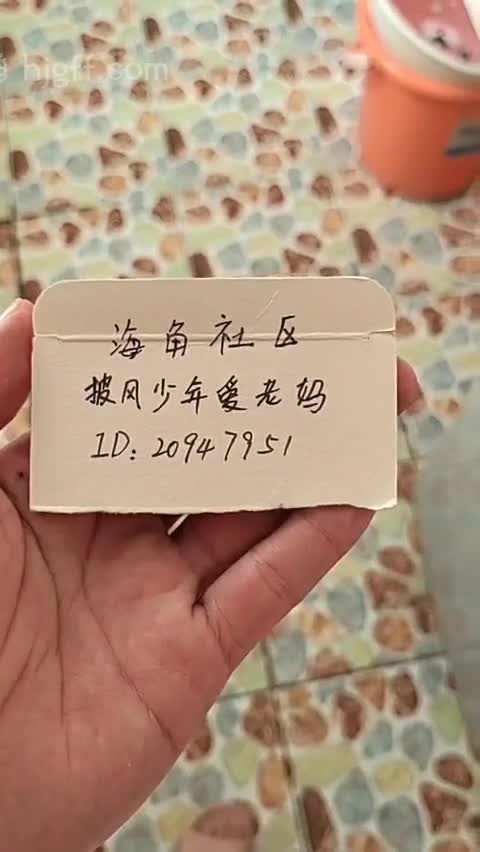 higff com
海角社区
披风少年爱老妈
ID: 20947951